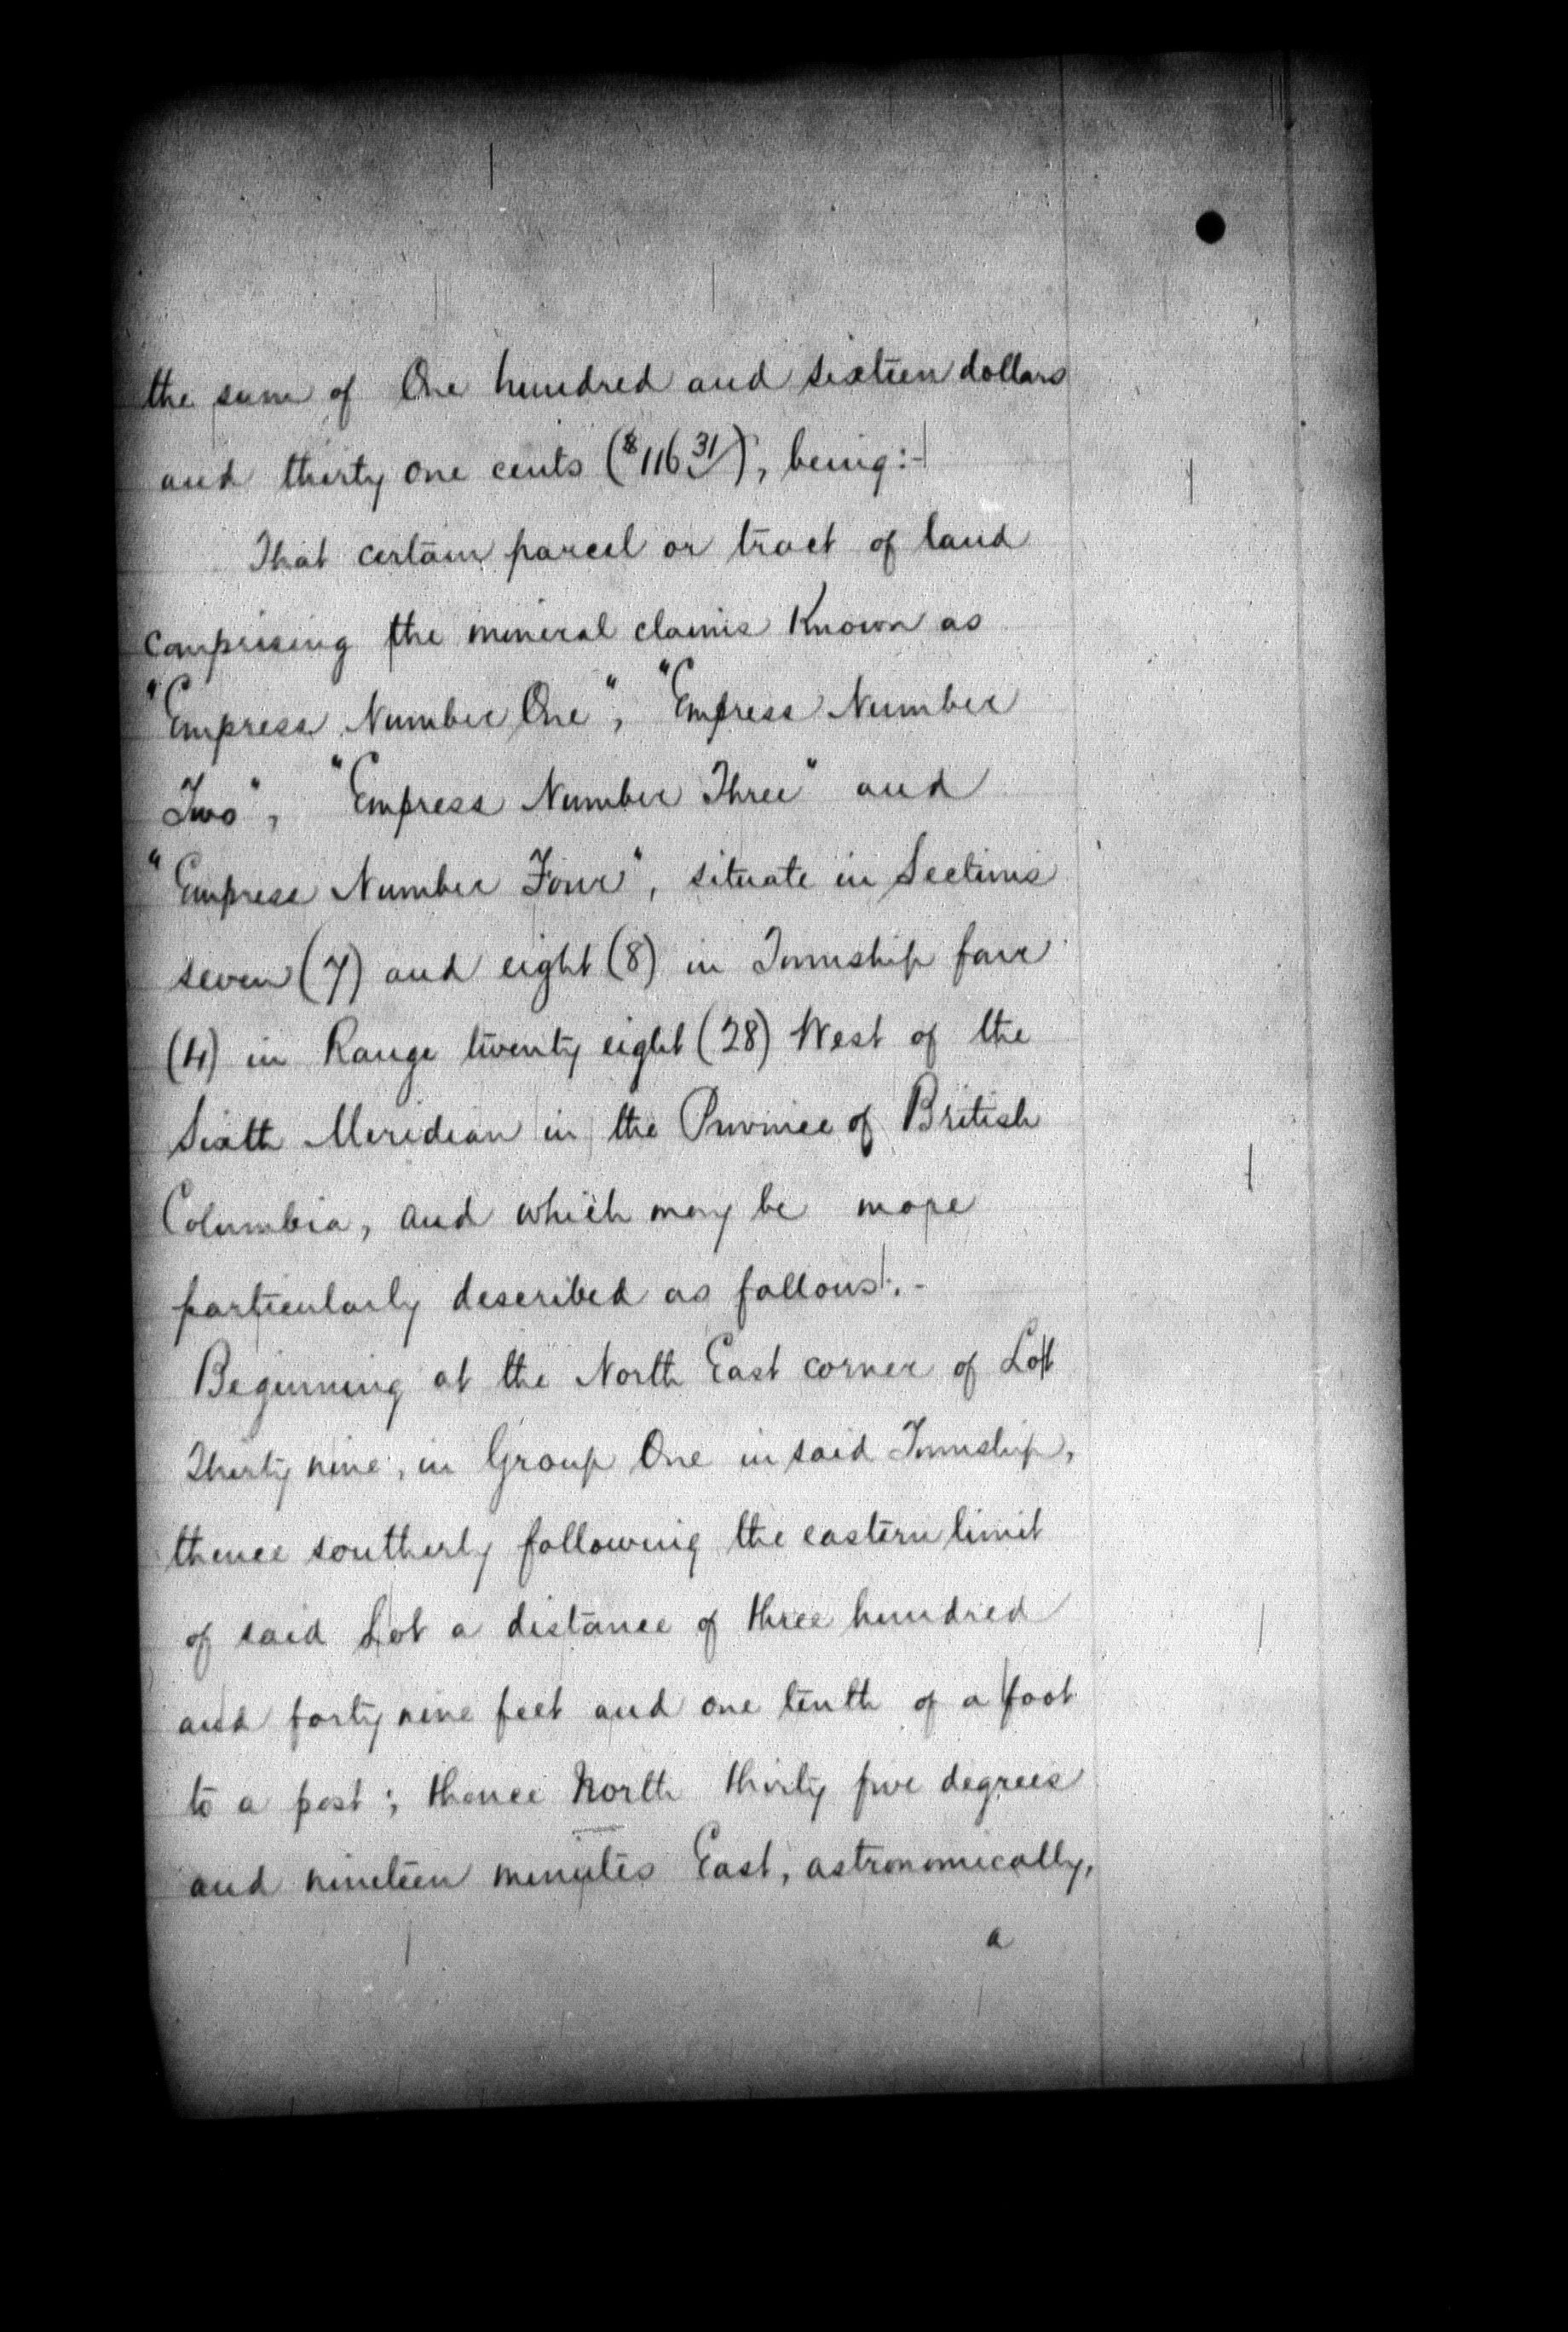 the sum of One hundred and sixteen dollars
and thirty one cents ($116 31/), being:-
That certain parcel or tract of land
comprising the mineral claims Known as
"Empress Number One", "Empress Number
Two", "Empress Number Three" and
"Empress Number Four", situate in Sections
seven (7) and eight (8) in Township four
(4) in Range twenty eight (28) West of the
Sixth Meridian in the Province of British
Columbia, and which may be more
particularly described as follows:-
Beginning at the North East corner of Lot
Thirty nine, in Group One in said Township,
thence southerly following the eastern limit
of said Lot a distance of three hundred
and forty nine feet and one tenth of a foot
to a post; thence North thirty five degrees
and nineteen minutes East, astronomically,
a